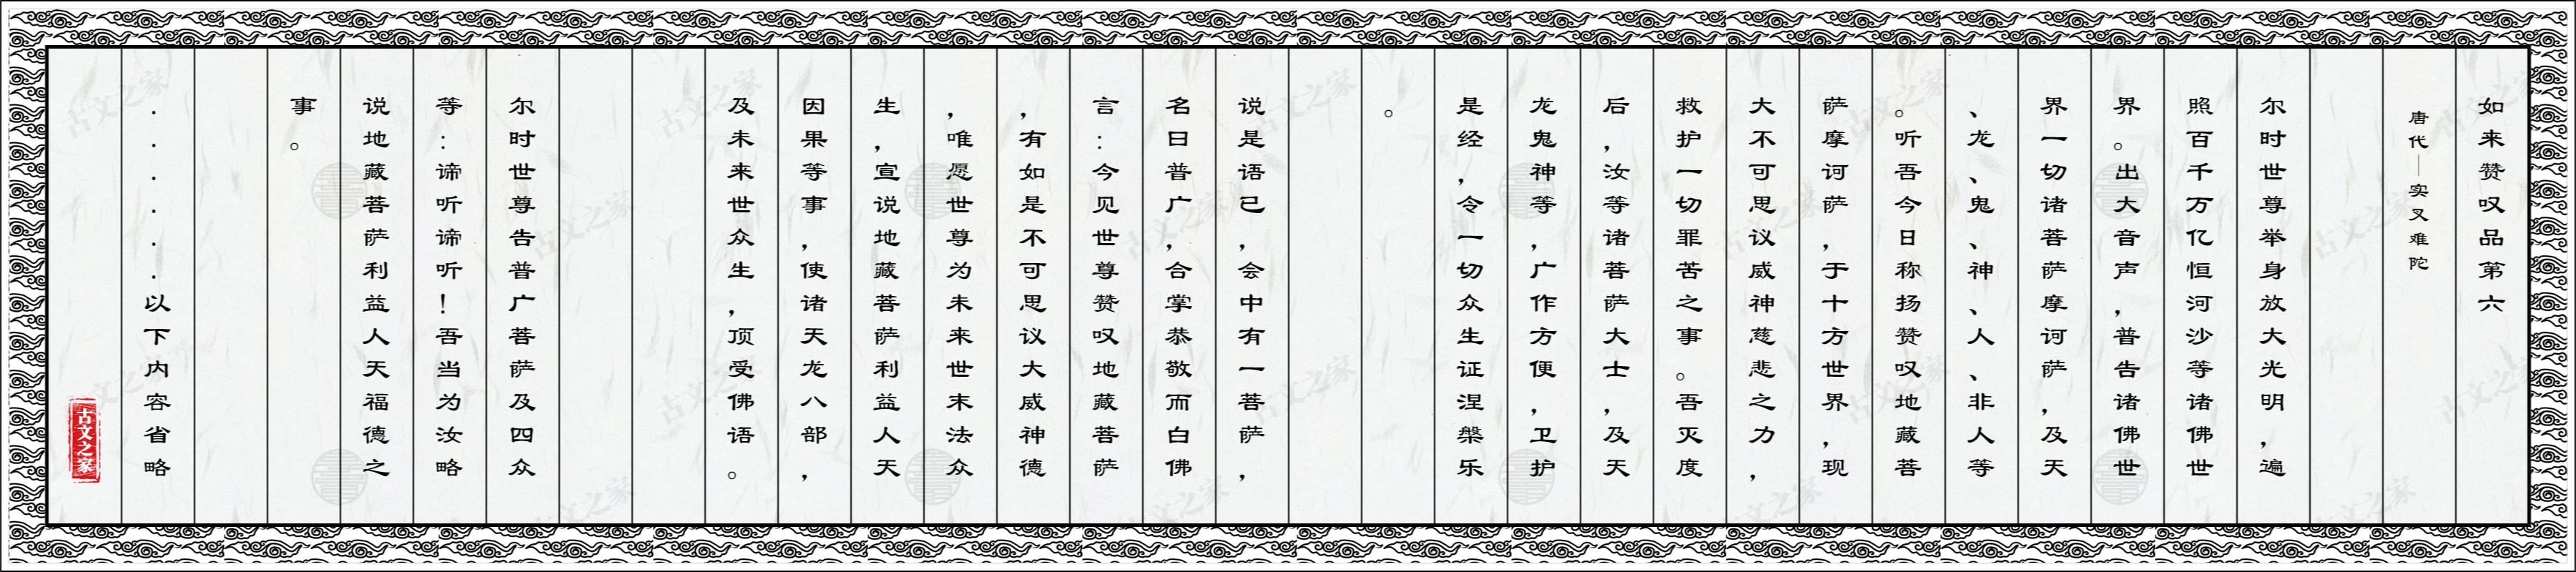 如来赞叹品第六
唐代—实叉难陀
尔时世尊举身放大光明，遍
照百千万亿恒河沙等诸佛世
界。出大音声，普告诸佛世
界一切诸菩萨摩诃萨，及天
、龙、鬼、神、人、非人等
。听吾今日称扬赞叹地藏菩
萨摩诃萨，于十方世界，现
大不可思议威神慈悲之力，
救护一切罪苦之事。吾灭度
后，汝等诸菩萨大士，及天
龙鬼神等，广作方便，卫护
是经，令一切众生证涅槃乐
。
说是语已，会中有一菩萨，
名曰普广，合掌恭敬而白佛
言：今见世尊赞叹地藏菩萨
，有如是不可思议大威神德
，唯愿世尊为未来世末法众
生，宣说地藏菩萨利益人天
因果等事，使诸天龙八部，
及未来世众生，顶受佛语。
尔时世尊告普广菩萨及四众
等：谛听谛听！吾当为汝略
说地藏菩萨利益人天福德之
事。
......以下内容省略
古文之家